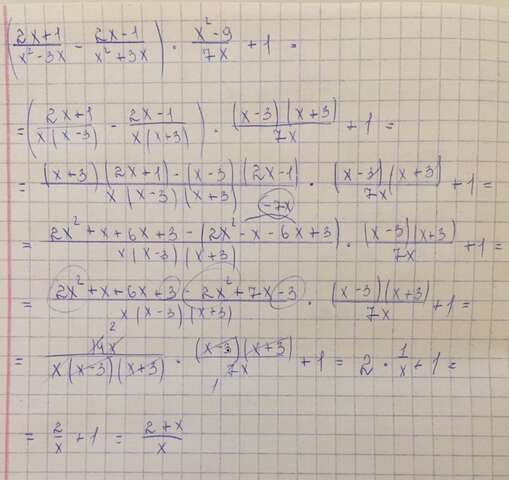 (2x+1/x²-3x - 2x-1/x²+3x) · x²-9/7x + 1 =
= (2x+1/x(x-3) - 2x-1/x(x+3)) · (x-3)(x+3)/7x + 1 =
= (x+3)(2x+1)-(x-3)(2x-1)/x(x-3)(x+3) · (x-3)(x+3)/7x + 1 =
-7x
= 2x²+x+6x+3-(2x²-x-6x+3)/x(x-3)(x+3) · (x-3)(x+3)/7x + 1 =
= 2x²+x+6x+3-2x²+7x-3/x(x-3)(x+3) · (x-3)(x+3)/7x + 1 =
2
= 14x/x(x-3)(x+3) · (x-3)(x+3)/7x + 1 = 2 · 1/x + 1 =
1
= 2/x + 1 = 2+x/x